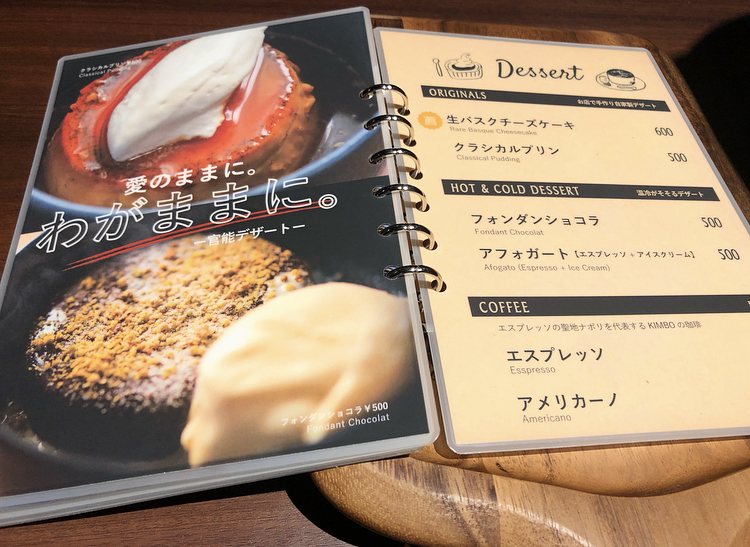 クラシカルプリン ¥500
Classical Pudding
愛のままに。
わがままに。
ー官能デザートー
フォンダンショコラ¥500
Fondant Chocolat
Dessert
ORIGINALS お店で手作り自家製デザート
生バスクチーズケーキ 600
Rare Basque Cheesecake
クラシカルプリン 500
Classical Pudding
HOT & COLD DESSERT 温冷がそそるデザート
フォンダンショコラ 500
Fondant Chocolat
アフォガート【エスプレッソ+アイスクリーム】 500
Afogato (Espresso + Ice Cream)
COFFEE
エスプレッソの聖地ナポリを代表する KIMBO の珈琲
エスプレッソ
Esspresso
アメリカーノ
Americano